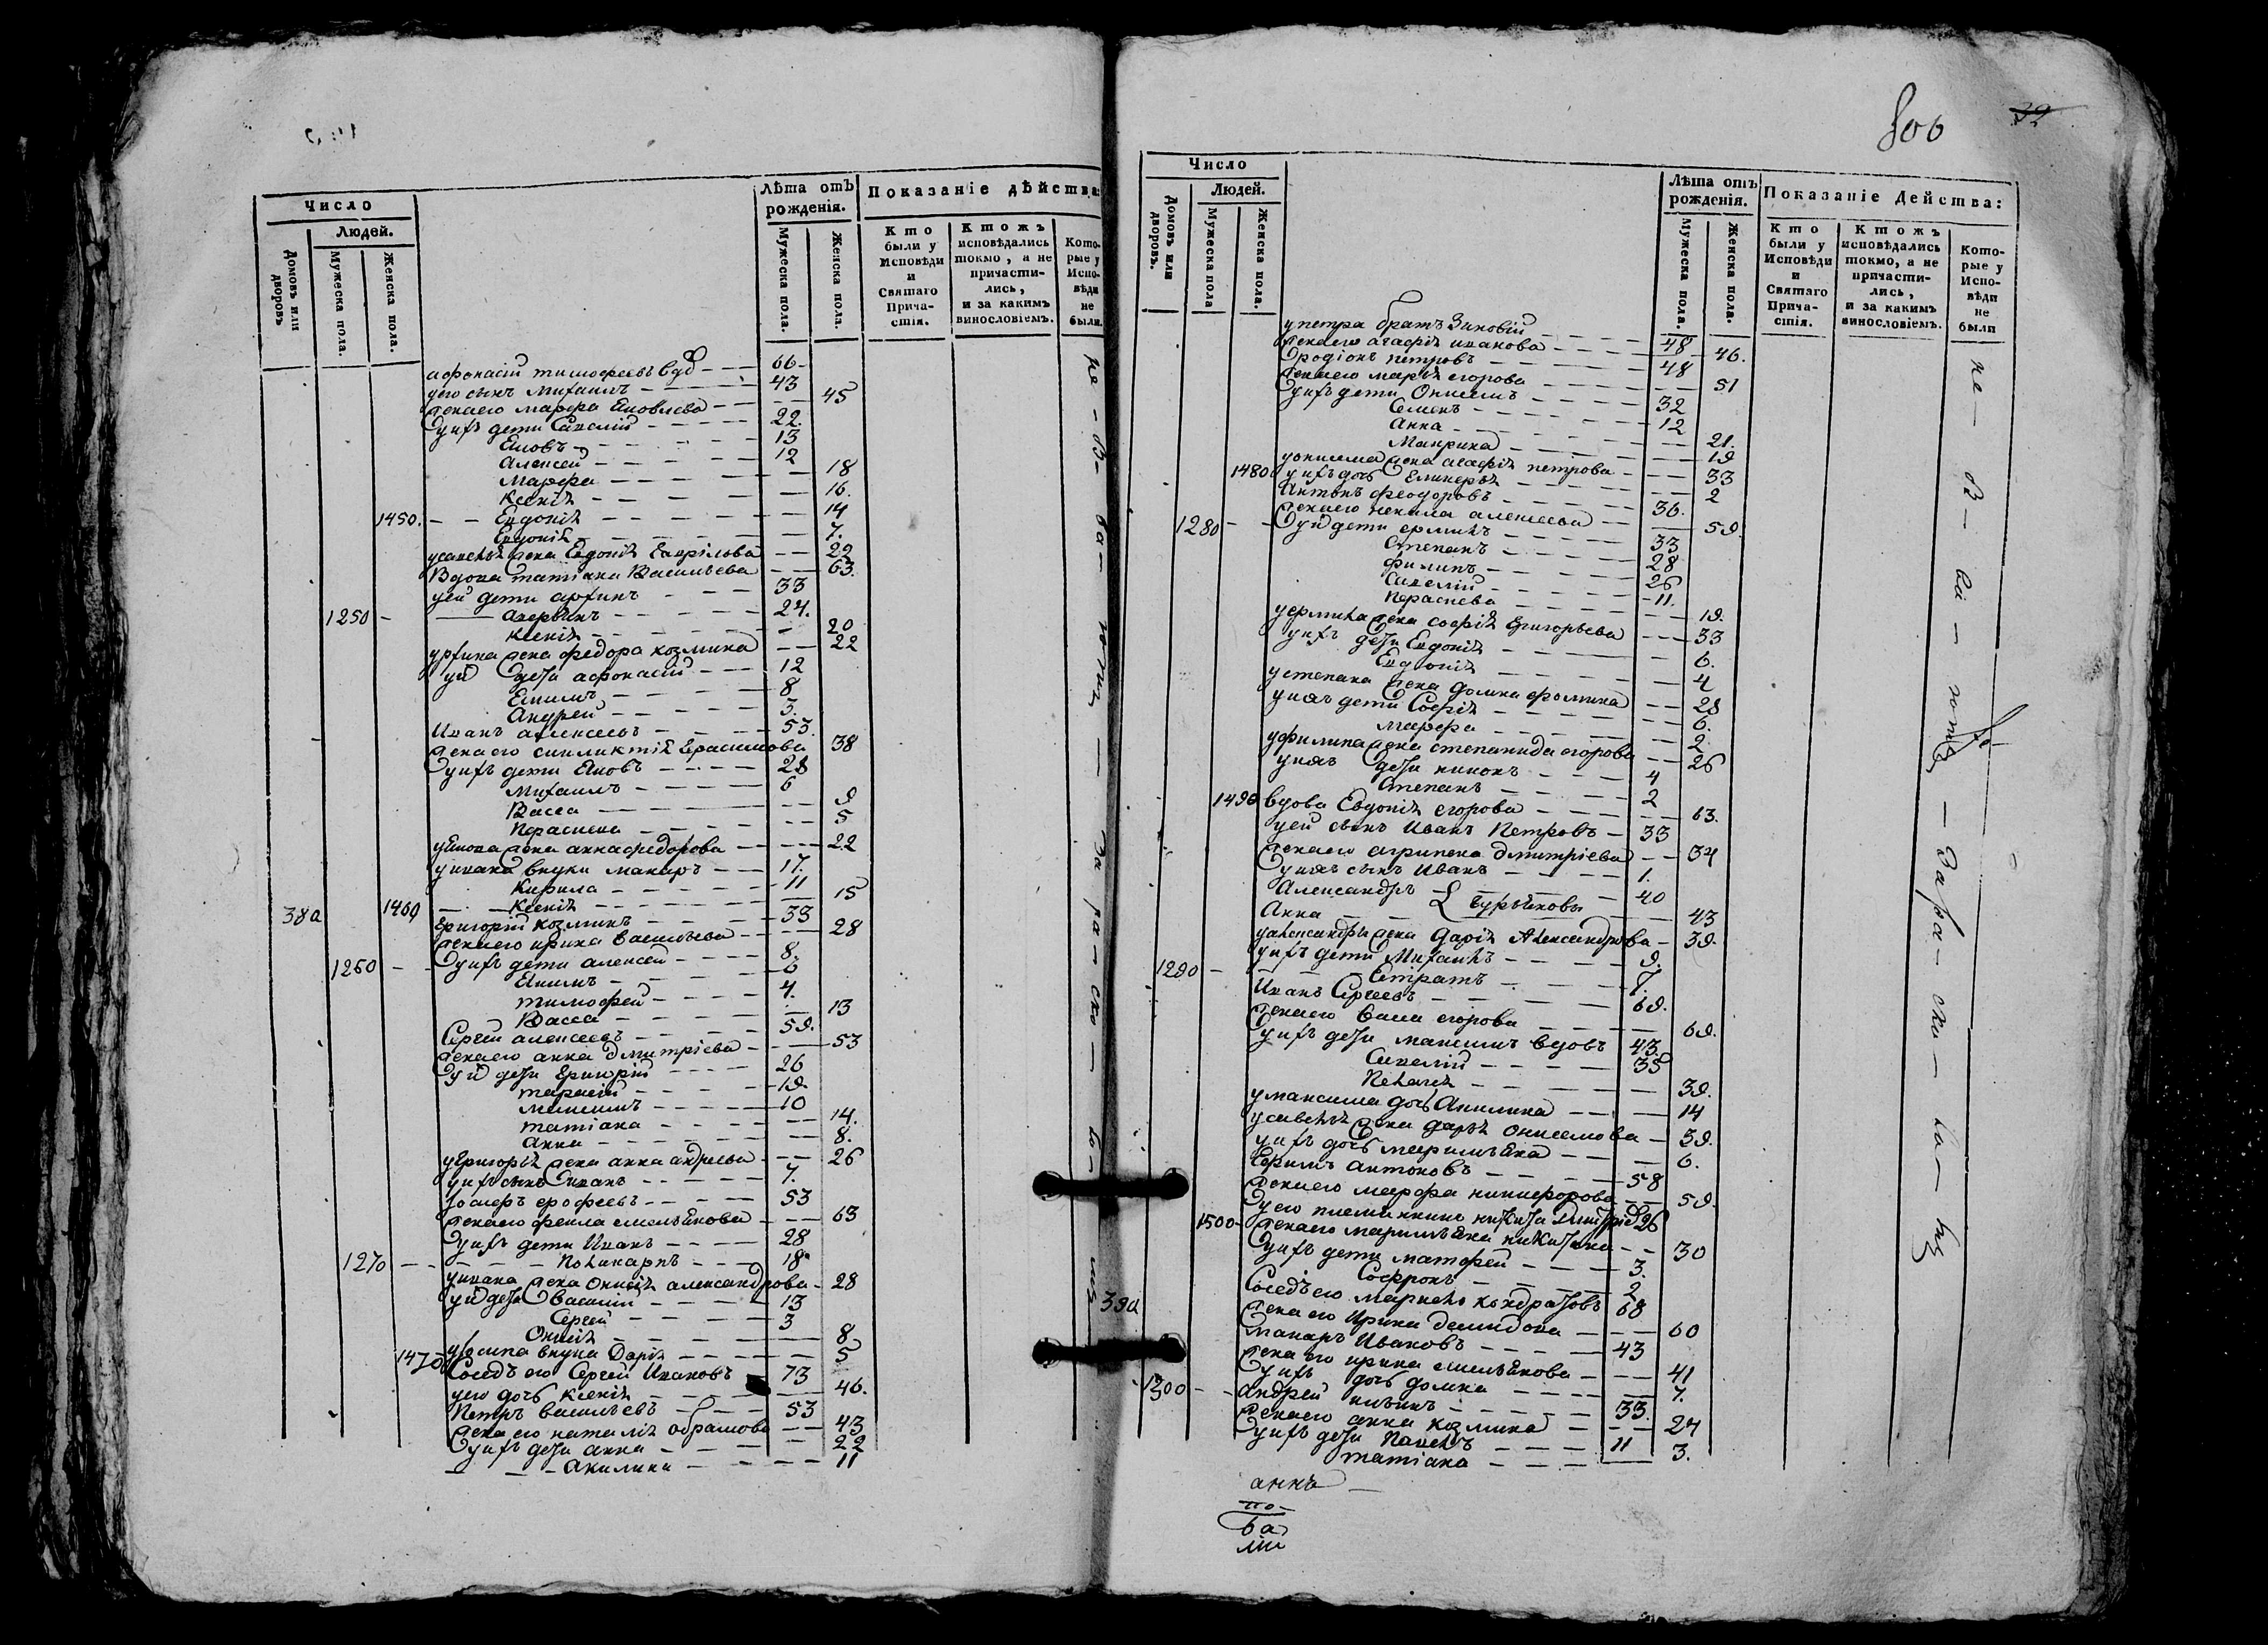 Число
Людей.
Домовъ или дворовъ
Мужеска пола.
Женска пола.
Лѣта отъ рожденія.
Мужеска пола.
Женска пола.
Показаніе дѣйства:
Кто были у Исповѣди и Святаго Причастія.
Ктожъ исповѣдались токмо, а не причастились, и за какимъ винословіемъ.
Которые у Исповѣди не были.
афонасій тимофеевъ вдв 66
уего сынъ Михаилъ 43
жена его марфа Яковлева 45
у ихъ дети Савелій 22.
Яковъ 13
Алексей 12
Марфа 18
Ксенія 16.
1450. Евдокія 14
Евдокія 7.
усавелья жена Евдокія Гаврілова 22
Вдова татіана Васильева 63.
уей дети архипъ 33
1250 аверьянъ 24.
ксенія 20
урхипа жена федора козмина 22
уй дети афонасій 12
Якимъ 8
Андрей 3.
Иванъ алексеевъ 53.
жена его синликтія Герасимова 38
у ихъ дети Яковъ 28
Михаилъ 6
Васса 9
Парасковя 5
уЯкова жена анна федорова 22
уивана внуки макаръ 17.
Кирила 11
1460 Ксенія 15
38а Григорій козминъ 33
жена его ирина васильева 28
1260 у ихъ дети алексей 8.
Якимъ 6
тимофей 4.
Васса 13
Сергей алексеевъ 59.
жена его анна дмитріева 53
уй дети Григорій 26
тарасій 19.
максимъ 10
татіана 14.
анна 8.
уГригорія жена анна андреева 26
у ихъ сынъ Иванъ 7.
Іосифъ ерофеевъ 53
жена его фекла емельянова 63
у ихъ дети Иванъ 28
1270 Поликарпъ 18
уивана жена Онисія александрова 28
уй дети Василій 13
Сергей 3
Онисія 8
1470 уосипа внука Дарія 5
Соседъ его Сергей Ивановъ 73
уего дочь ксенія 46.
Петръ васильевъ 53
жена его наталія абрамова 43
у ихъ дети анна 22
Акилина 11
не – въ – ва – ютц — За – ра – ско – ко – ль
800
39
Число
Людей.
Домовъ или дворовъ.
Мужеска пола
Женска пола.
Лѣта отъ рожденія.
Мужеска пола.
Женска пола.
Показаніе Действа:
Кто были у Исповѣди и Святаго Причастія.
Ктожъ исповѣдались токмо, а не причастились, и за какимъ винословіемъ.
Которые у Исповѣди не были
упетра братъ Зиновій 48
жена его агафія иванова 46.
Родіонъ петровъ 48
жена его марія егорова 51
у ихъ дети Онисимъ 32
Семенъ 12
Анна 21.
Маврина 19
уонисима жена агафія петрова 33
1480 у ихъ дочь Гликерья 2
Антонъ феодоровъ 36.
жена его пекила алексеева 59.
1280 уй дети ермилъ 33
Степанъ 28
филипъ 26
Савелій 11.
Парасковя 19.
уермила жена софія Григорьева 33
у ихъ дети Евдокія 6.
Евдокія 4
устепана жена домна фомина 28
у ихъ дети Софія 6.
марфа 2.
уфилипа жена степанида егорова 26
у ихъ дети никонъ 4
Степанъ 2
1490 вдова Евдокія егорова 63.
уей сынъ Иванъ Петровъ 33
жена его агрипена дмитріева 34
у ихъ сынъ Иванъ 1.
Александръ 40
Анна 43
уалександры жена Дарія Александрова 39.
у ихъ дети Михаилъ 9.
1290 Евтратъ 7.
Иванъ Сергеевъ 69.
жена его васа егорова 69.
у ихъ дети максимъ вдовъ 43
Савелій 35
Пелагея 39.
умаксима дочь Акилина 14
усавелья жена дарья онисимова 39.
у ихъ дочь маримьяна 6.
Ефимъ антоновъ 58
жена его марфа никифорова 59.
у его племянникъ никита Дмитріевъ 26
1500 жена его маримьяна никитина 30
у ихъ дети матфей 3.
Софронъ 2
39а Соседъ его маркелъ кондратовъ 68
жена его Ирина демидова 60
макаръ Ивановъ 43
жена его ирина емельянова 41
у ихъ дочь домна 7.
1300 андрей 33.
жена его анна козмина 24
у ихъ дети Павелъ 11
татіана 3.